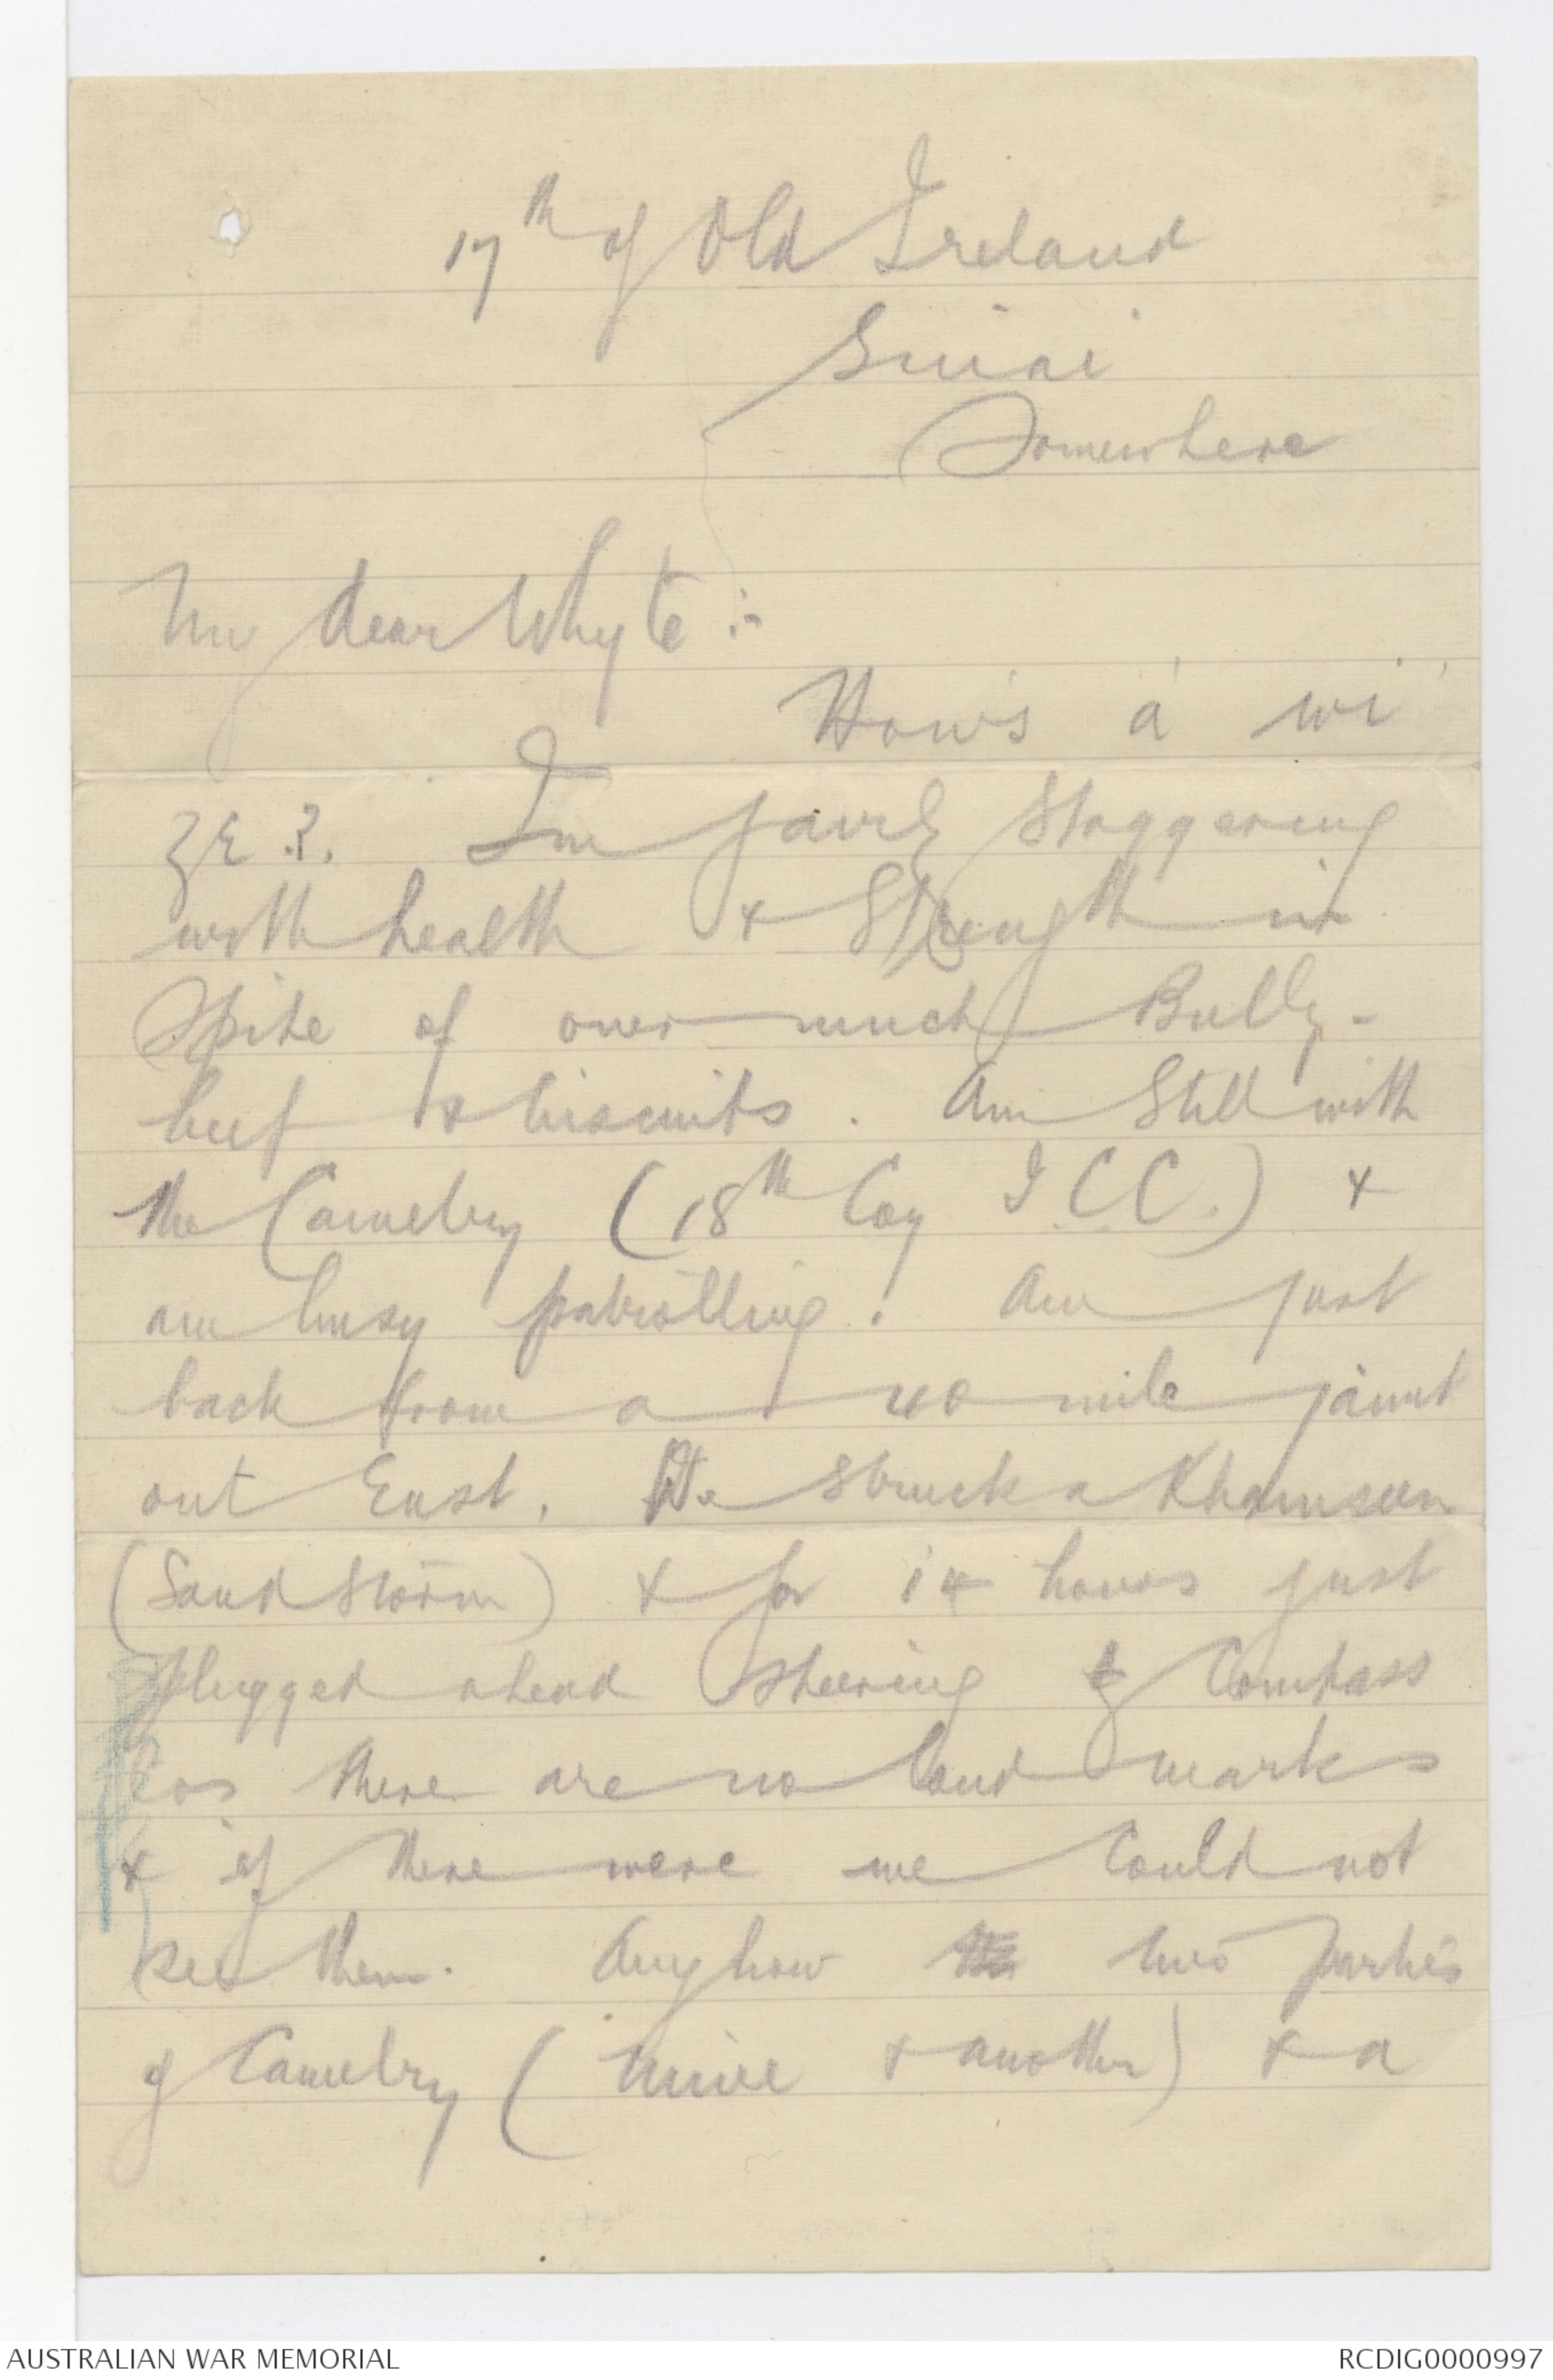 17th of Old Ireland
Sinai
Somewhere
My dear Whyte :-
How's a' wi'
ye ?. I'm fairly staggering
with health & strength in
spite of over much Bully-
beef & biscuits. Am still with
the Camelry (18th Coy I.C.C.) &
am busy patrolling. Am just
back from a mile jaunt
out East. We struck a Khamseen
(Sand storm) & for 14 hours just
plugged ahead steering by Compass
cos there are no land marks
& if there were we could not
see them. Anyhow two parties
of Camelry (mine & another) & a
AUSTRALIAN WAR MEMORIAL
RCDIG0000997